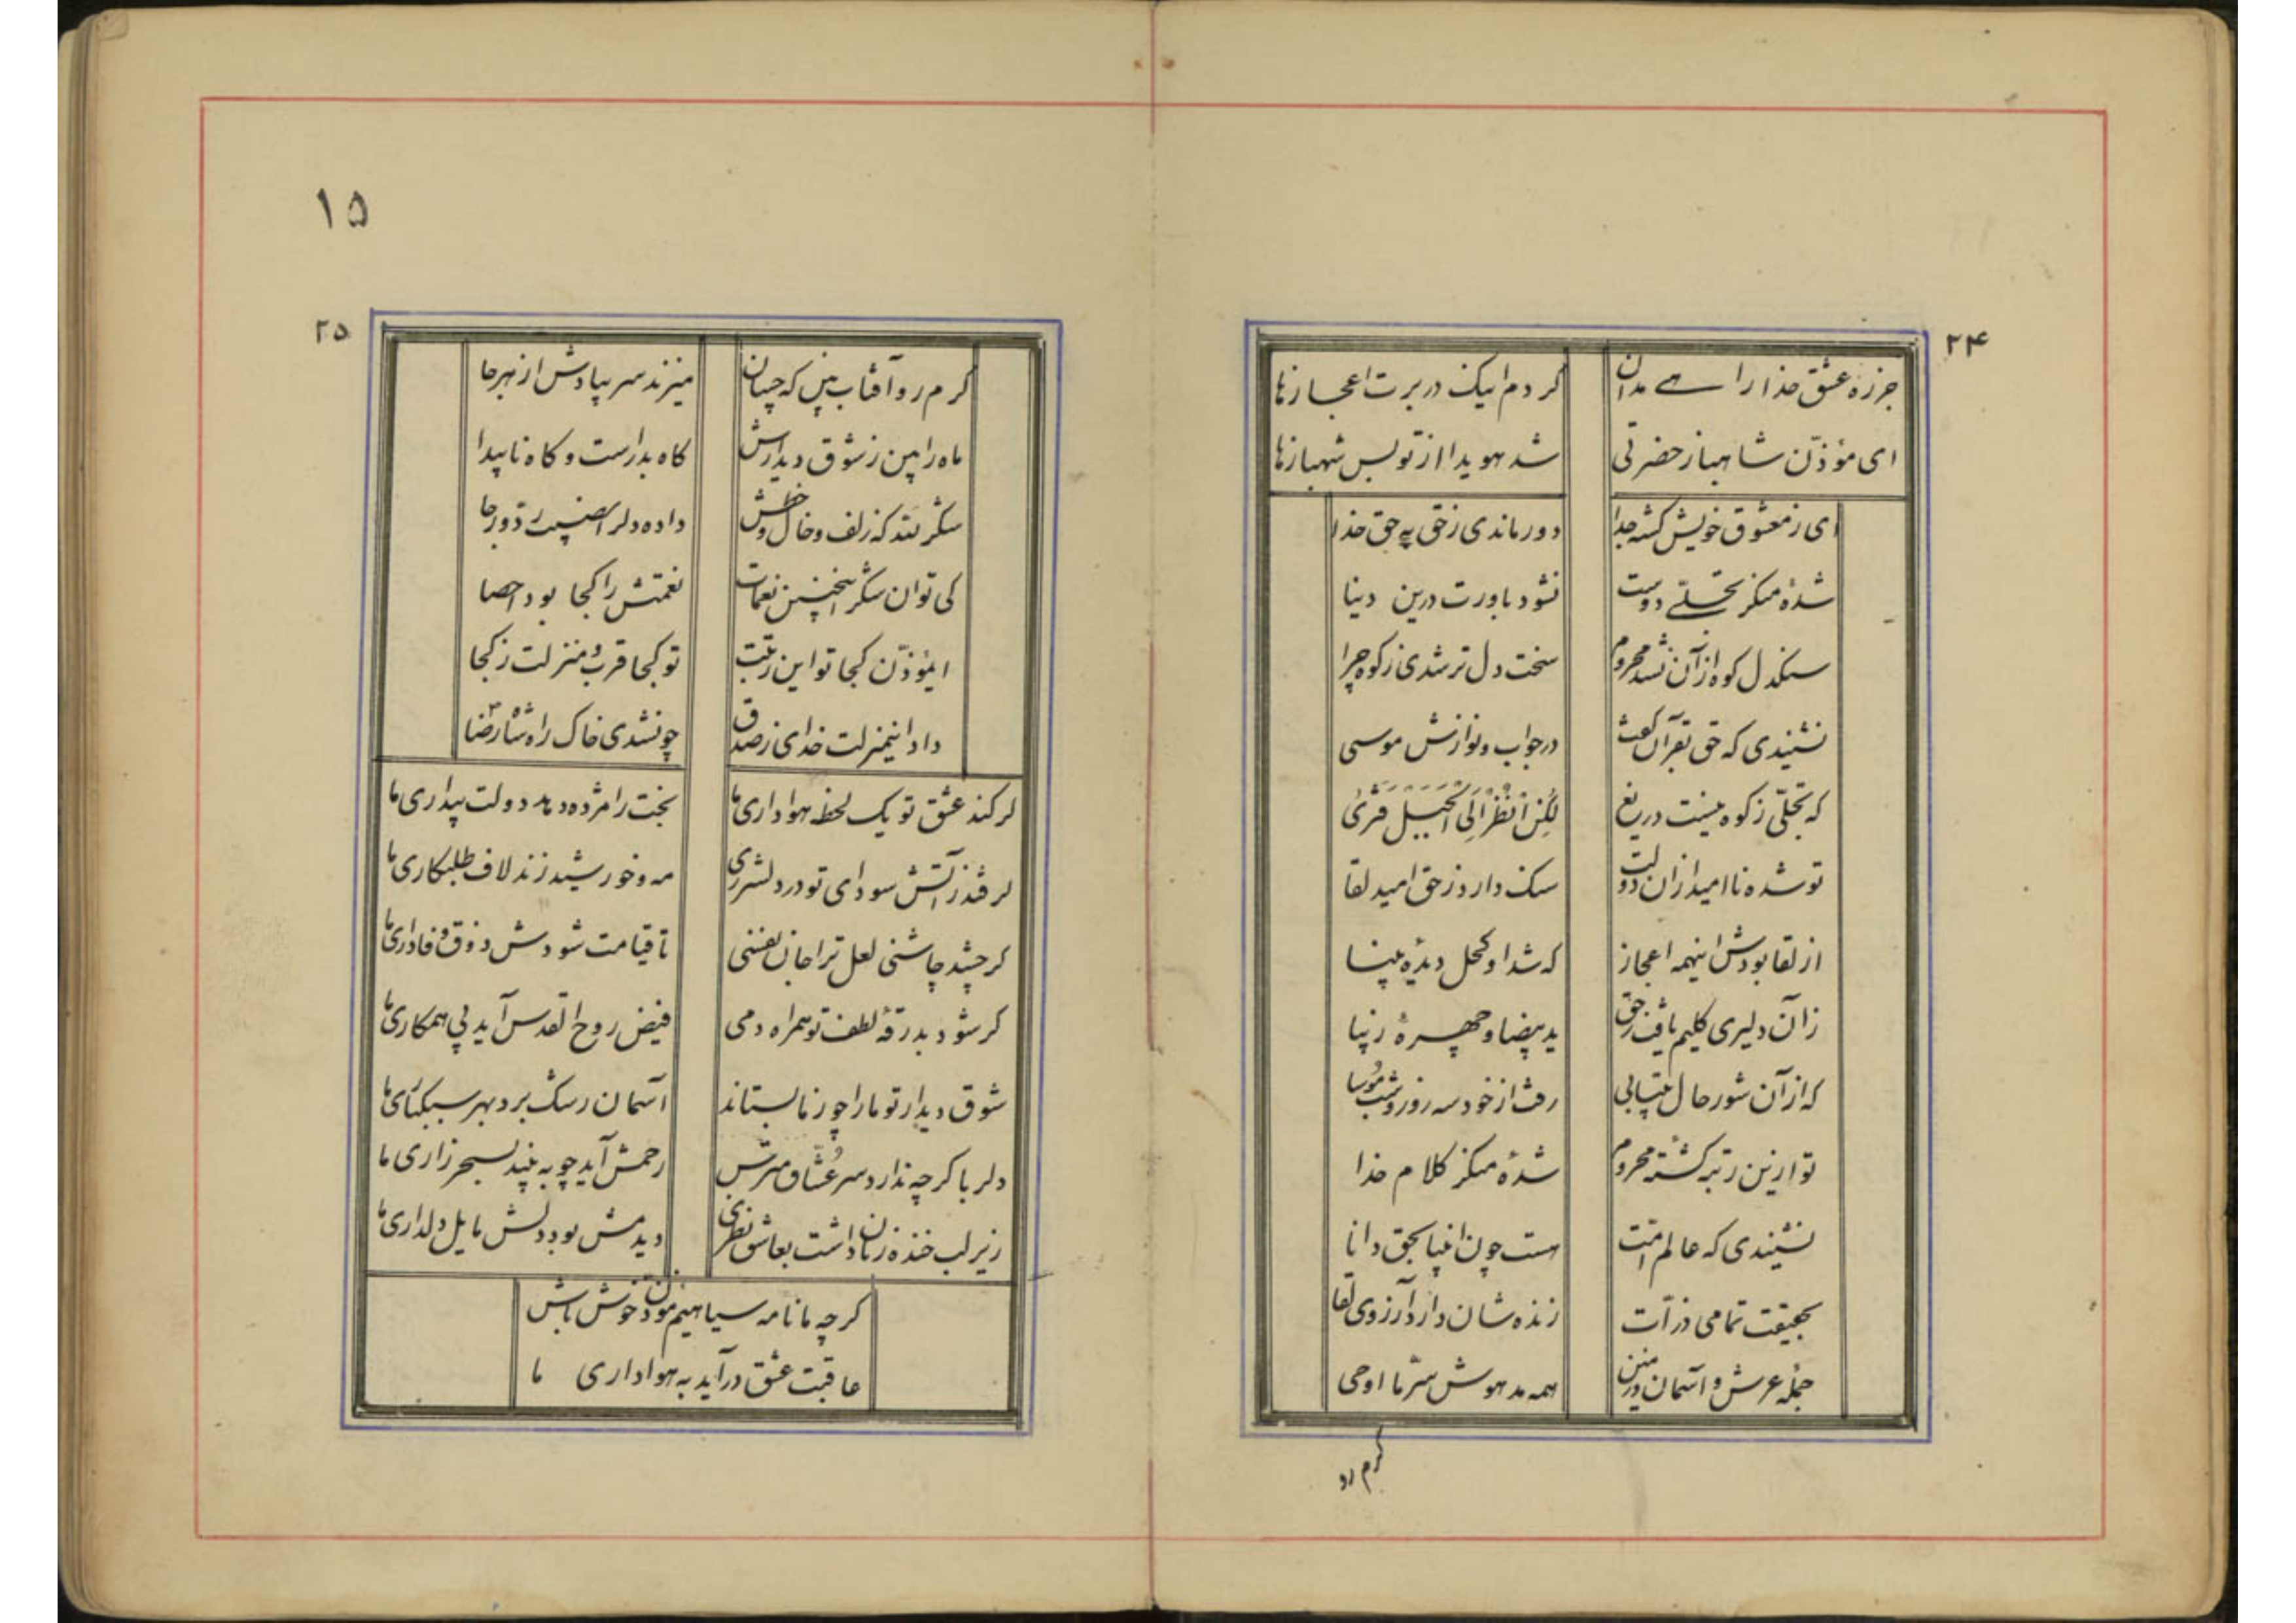 ۲۴
جز ره عشق خدا راهی مدان کردم اینک در برت اعجازها
ای مؤذّن شاهباز حضرتی شد هویدا از تو بس شهبازها
ای ز معشوق خویش گشته جدا دور ماندی ز حق به حق خدا
شدهٔ منکر تجلّی دوست نشود باورت درین دنیا
سنگدل کوه از آن نشد محروم سخت دل تر شدی ز کوه چرا
نشنیدی که حق بقرآن گفت در جواب و نوازش موسی
که تجلّی ز کوه نیست دریغ لکِنِ انْظُرْ اِلَی الْجَبَلْ فَتَریٰ
تو شده ناامید از آن دولت سنک دارد ز حق امید لقا
از لقا بودش اینهمه اعجاز که شد او کحل دیدهٔ بینا
زان دلیری کلیم یافت ز حق ید بیضا و چهرهٔ زیبا
که از آن شور حال بیتابی رفت از خود سه روز و شب موسا
تو ازین رتبه گشتهٔ محروم شدهٔ منکر کلام خدا
نشنیدی که عالم امّت هست چون انبیا بحق دانا
بحقیقت تمامی ذرّات زنده شان دارد آرزوی لقا
جملهٔ عرش و آسمان و زمین همه مدهوش سرّ ما اوحی
گرم رو
۱۵
۲۵
گرم رو آفتاب بین که چسان میزند سر بپا دوش از هر جا
ماه را بین ز شوق دیدارش گاه بدرست و گاه ناپیدا
شکر لله که زلف و خال و خطش داده دلرا در جا
کی توان شکر اینچنین نعمات نعمتش را کجا بود احصا
ایمؤذّن کجا تو این رتبت تو کجا قرب و منزلت ز کجا
داد اینمنزلت خدای ز صدق چونشدی خاک راه شاه رضا
گر کند عشق تو یک لحظه هواداری ما بخت را مژده دهد دولت بیداری ما
گر فتد ز آتش سودای تو در دل شرری مه و خورشید زند لاف طلبکاری ما
گر چشد چاشنی لعل ترا جان نفسی تا قیامت شودش ذوق وفاداری ما
گر شود بدرقهٔ لطف تو همراه دمی فیض روح القدس آید پی همکاری ما
شوق دیدار تو ما را چو ز ما بستاند آسمان رشک برد بهر سبکباری ما
دلربا گرچه ندارد سر عُشّاق مترس رحمش آید چو به بیند بسحر زاری ما
زیر لب خنده زنان داشت بعاشق نظری دیدمش بود دلش مایل دلداری ما
گرچه ما نامه سیاهیم مؤذن خوش باش
عاقبت عشق درآید به هواداری ما